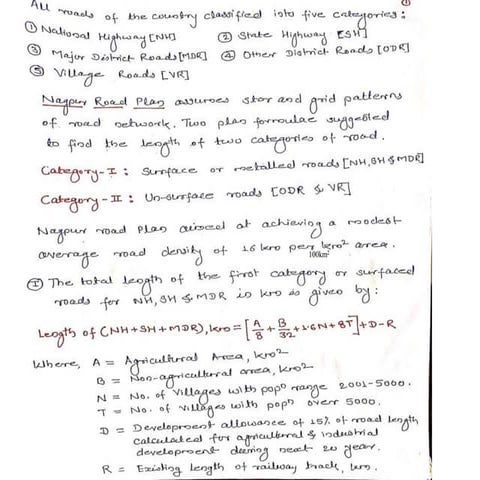 ①
All roads of the country classified into five categories:
① National Highway [NH] ② State Highway [SH]
③ Major District Roads [MDR] ④ Other District Roads [ODR]
⑤ Village Roads [VR]
Nagpur Road Plan assumes star and grid patterns
of road network. Two plan formulae suggested
to find the length of two categories of road.
Category-I: Surface or metalled roads [NH, SH & MDR]
Category-II: Un-surface roads [ODR & VR]
Nagpur road Plan aimed at achieving a modest
average road density of 16 km per km² area.
100km²
Ⓘ The total length of the first category or surfaced
roads for NH, SH & MDR in km is given by:
Length of (NH+SH+MDR), km = [A/8 + B/32 + 1.6N + 8T] + D-R
Where, A = Agricultural Area, km²
B = Non-agricultural area, km²
N = No. of Villages with popⁿ range 2001-5000.
T = No. of villages with popⁿ over 5000.
D = Development allowance of 15% of road length
calculated for agricultural & industrial
development during next 20 year.
R = Existing length of railway track, km.